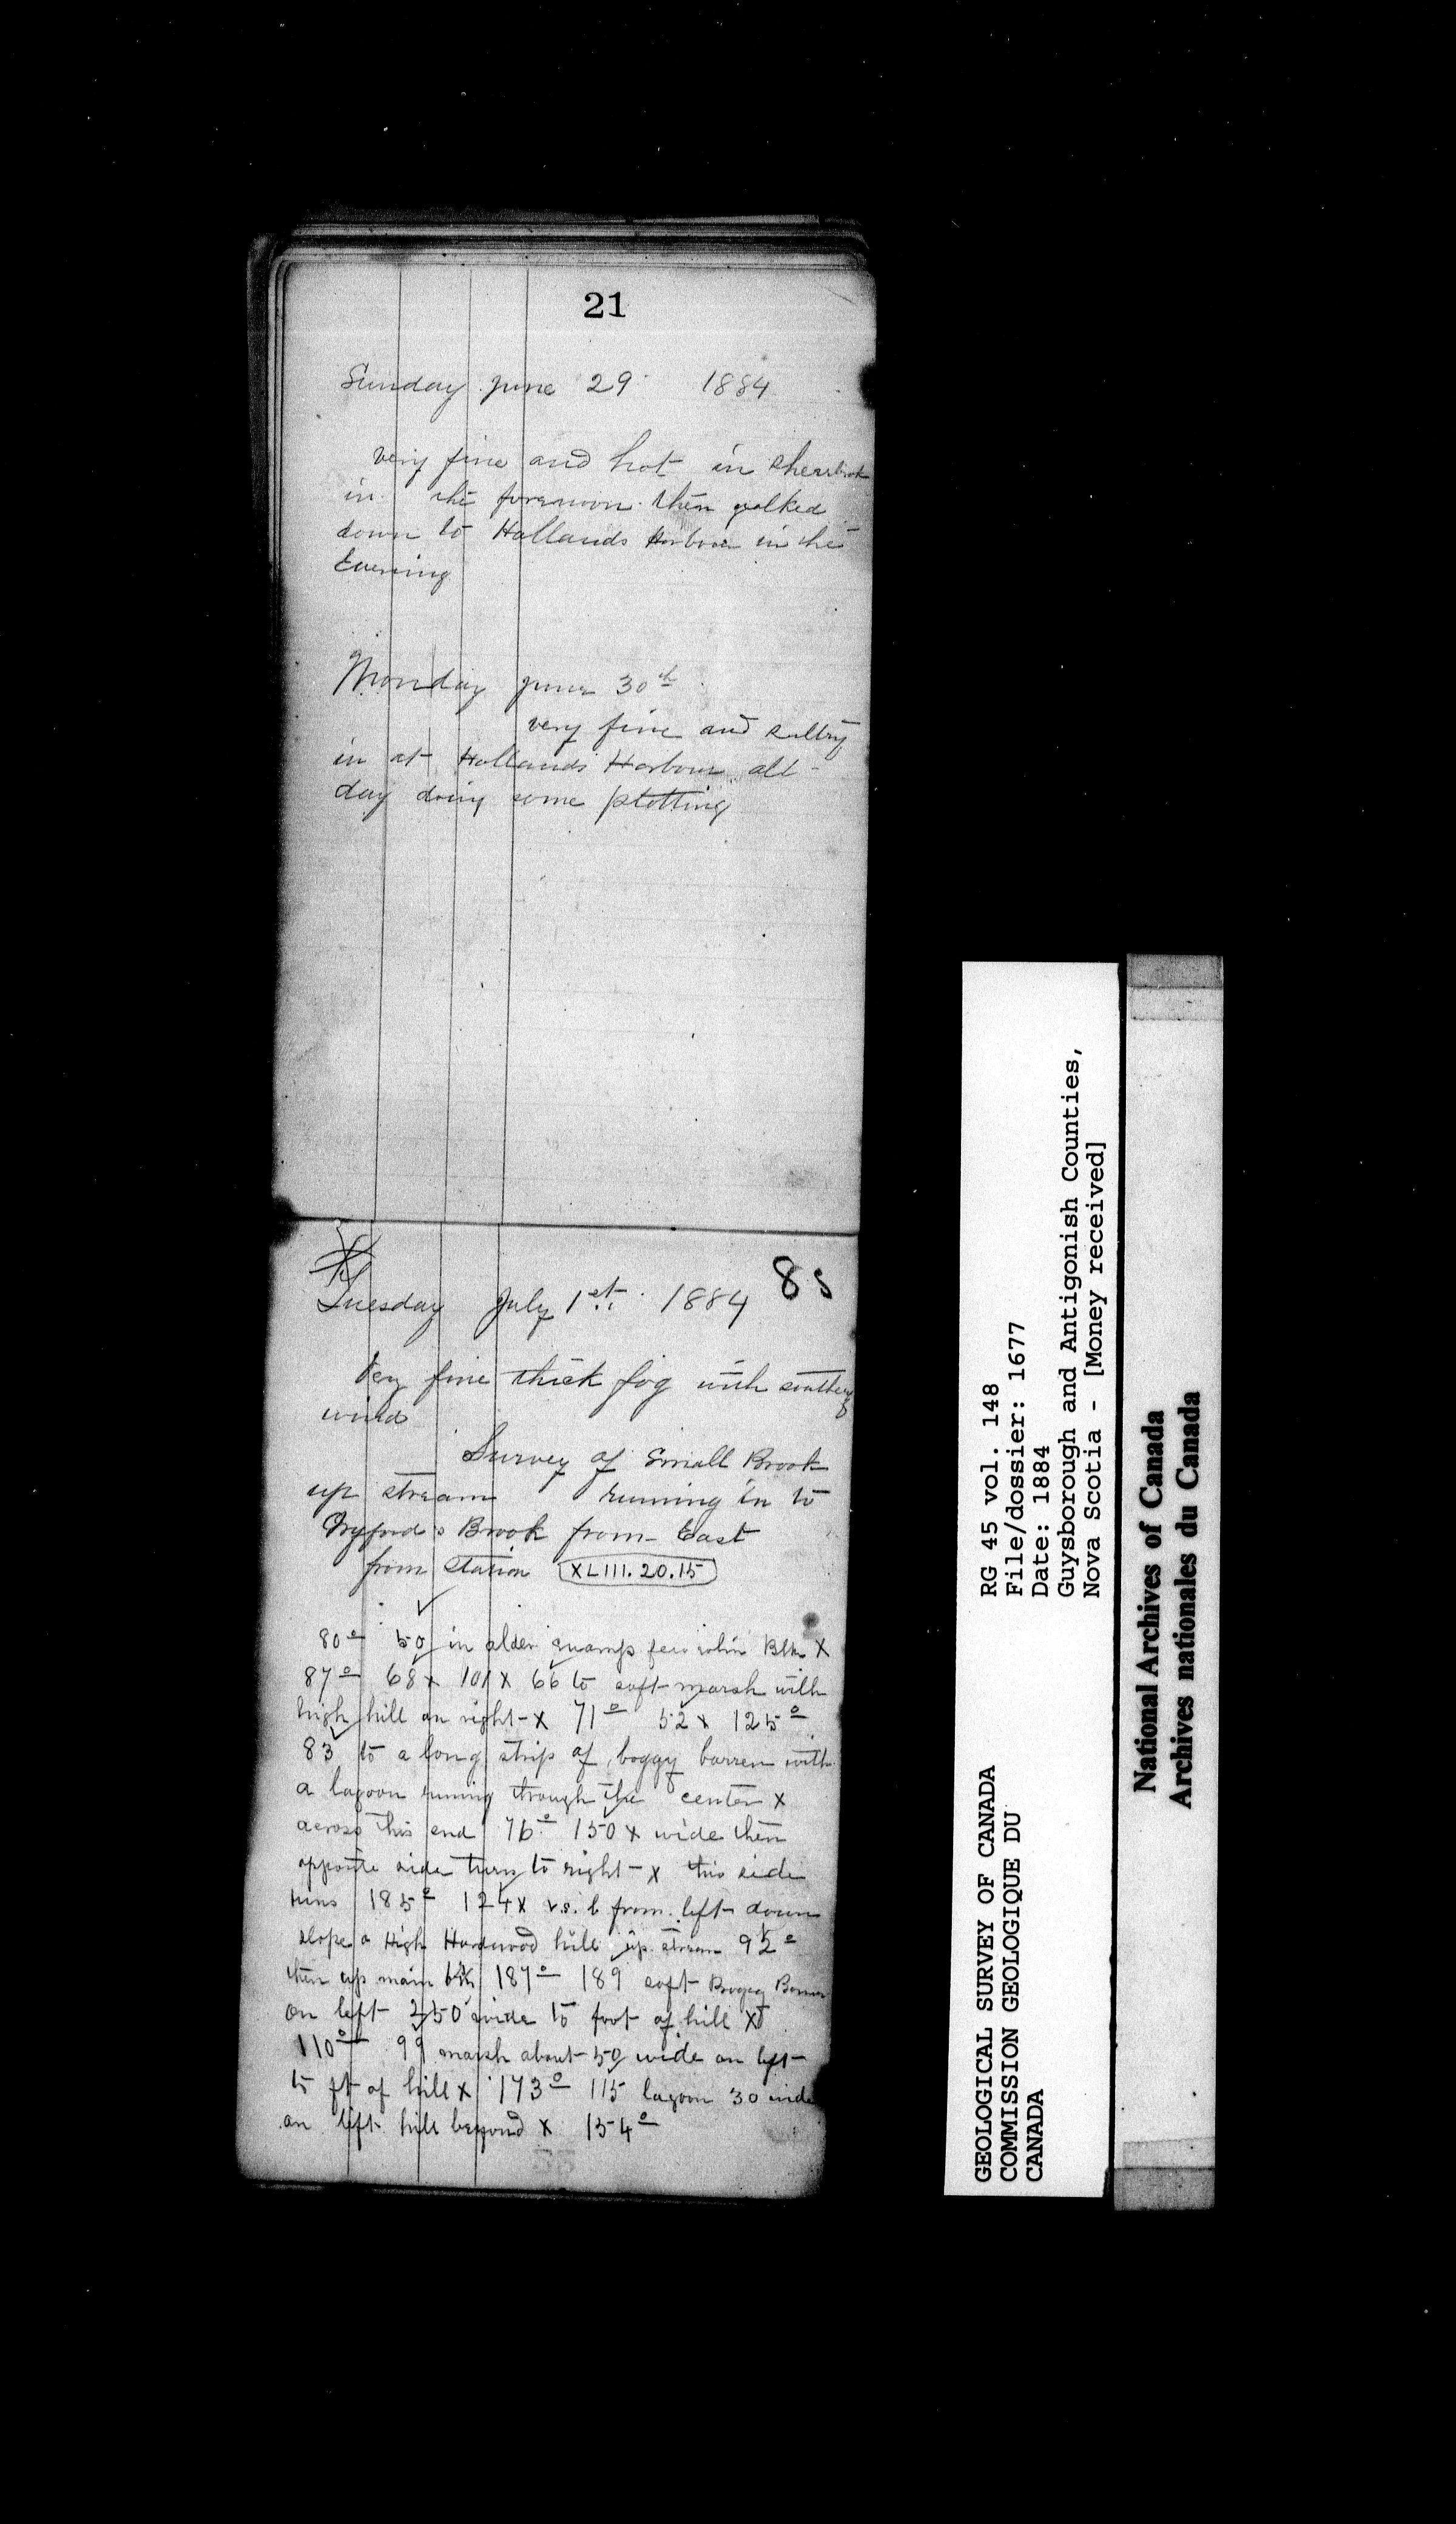 21
Sunday June 29 1884
very fine and hot in Sherbrook
in the forenoon then walked
down to Hollands Harbour in the
Evening
Monday June 30th
very fine and sultry
in at Hollands Harbour all
day doing some plotting
Tuesday July 1st 1884
Very fine thick fog with southerly
winds
Survey of Small Brook
up stream running in to
Brook from East
from station XLIII.20.15
80° 50 in alder swamp few whin Blks X
87° 68 x 101 x 66 to soft marsh with
high hill on right - x 71° 52 x 125°
83 to a long strip of boggy barren with
a lagoon runing through the center x
across this end 76° 150 x wide then
opposite side turns to right - x this side
runs 185° 124 x v.s.b from left down
slope a High Hardwood hill up stream 92°
then up main bk 187° 189 soft Boggy Barren
on left 250 wide to foot of hill X
110° 99 marsh about 50 wide on left
to ft of hill x 173° 115 lagoon 30 wide
on left hill beyond x 154°
GEOLOGICAL SURVEY OF CANADA
COMMISSION GEOLOGIQUE DU
CANADA
RG 45 vol. 148
File/dossier: 1677
Date: 1884
Guysborough and Antigonish Counties,
Nova Scotia - [Money received]
National Archives of Canada
Archives nationales du Canada